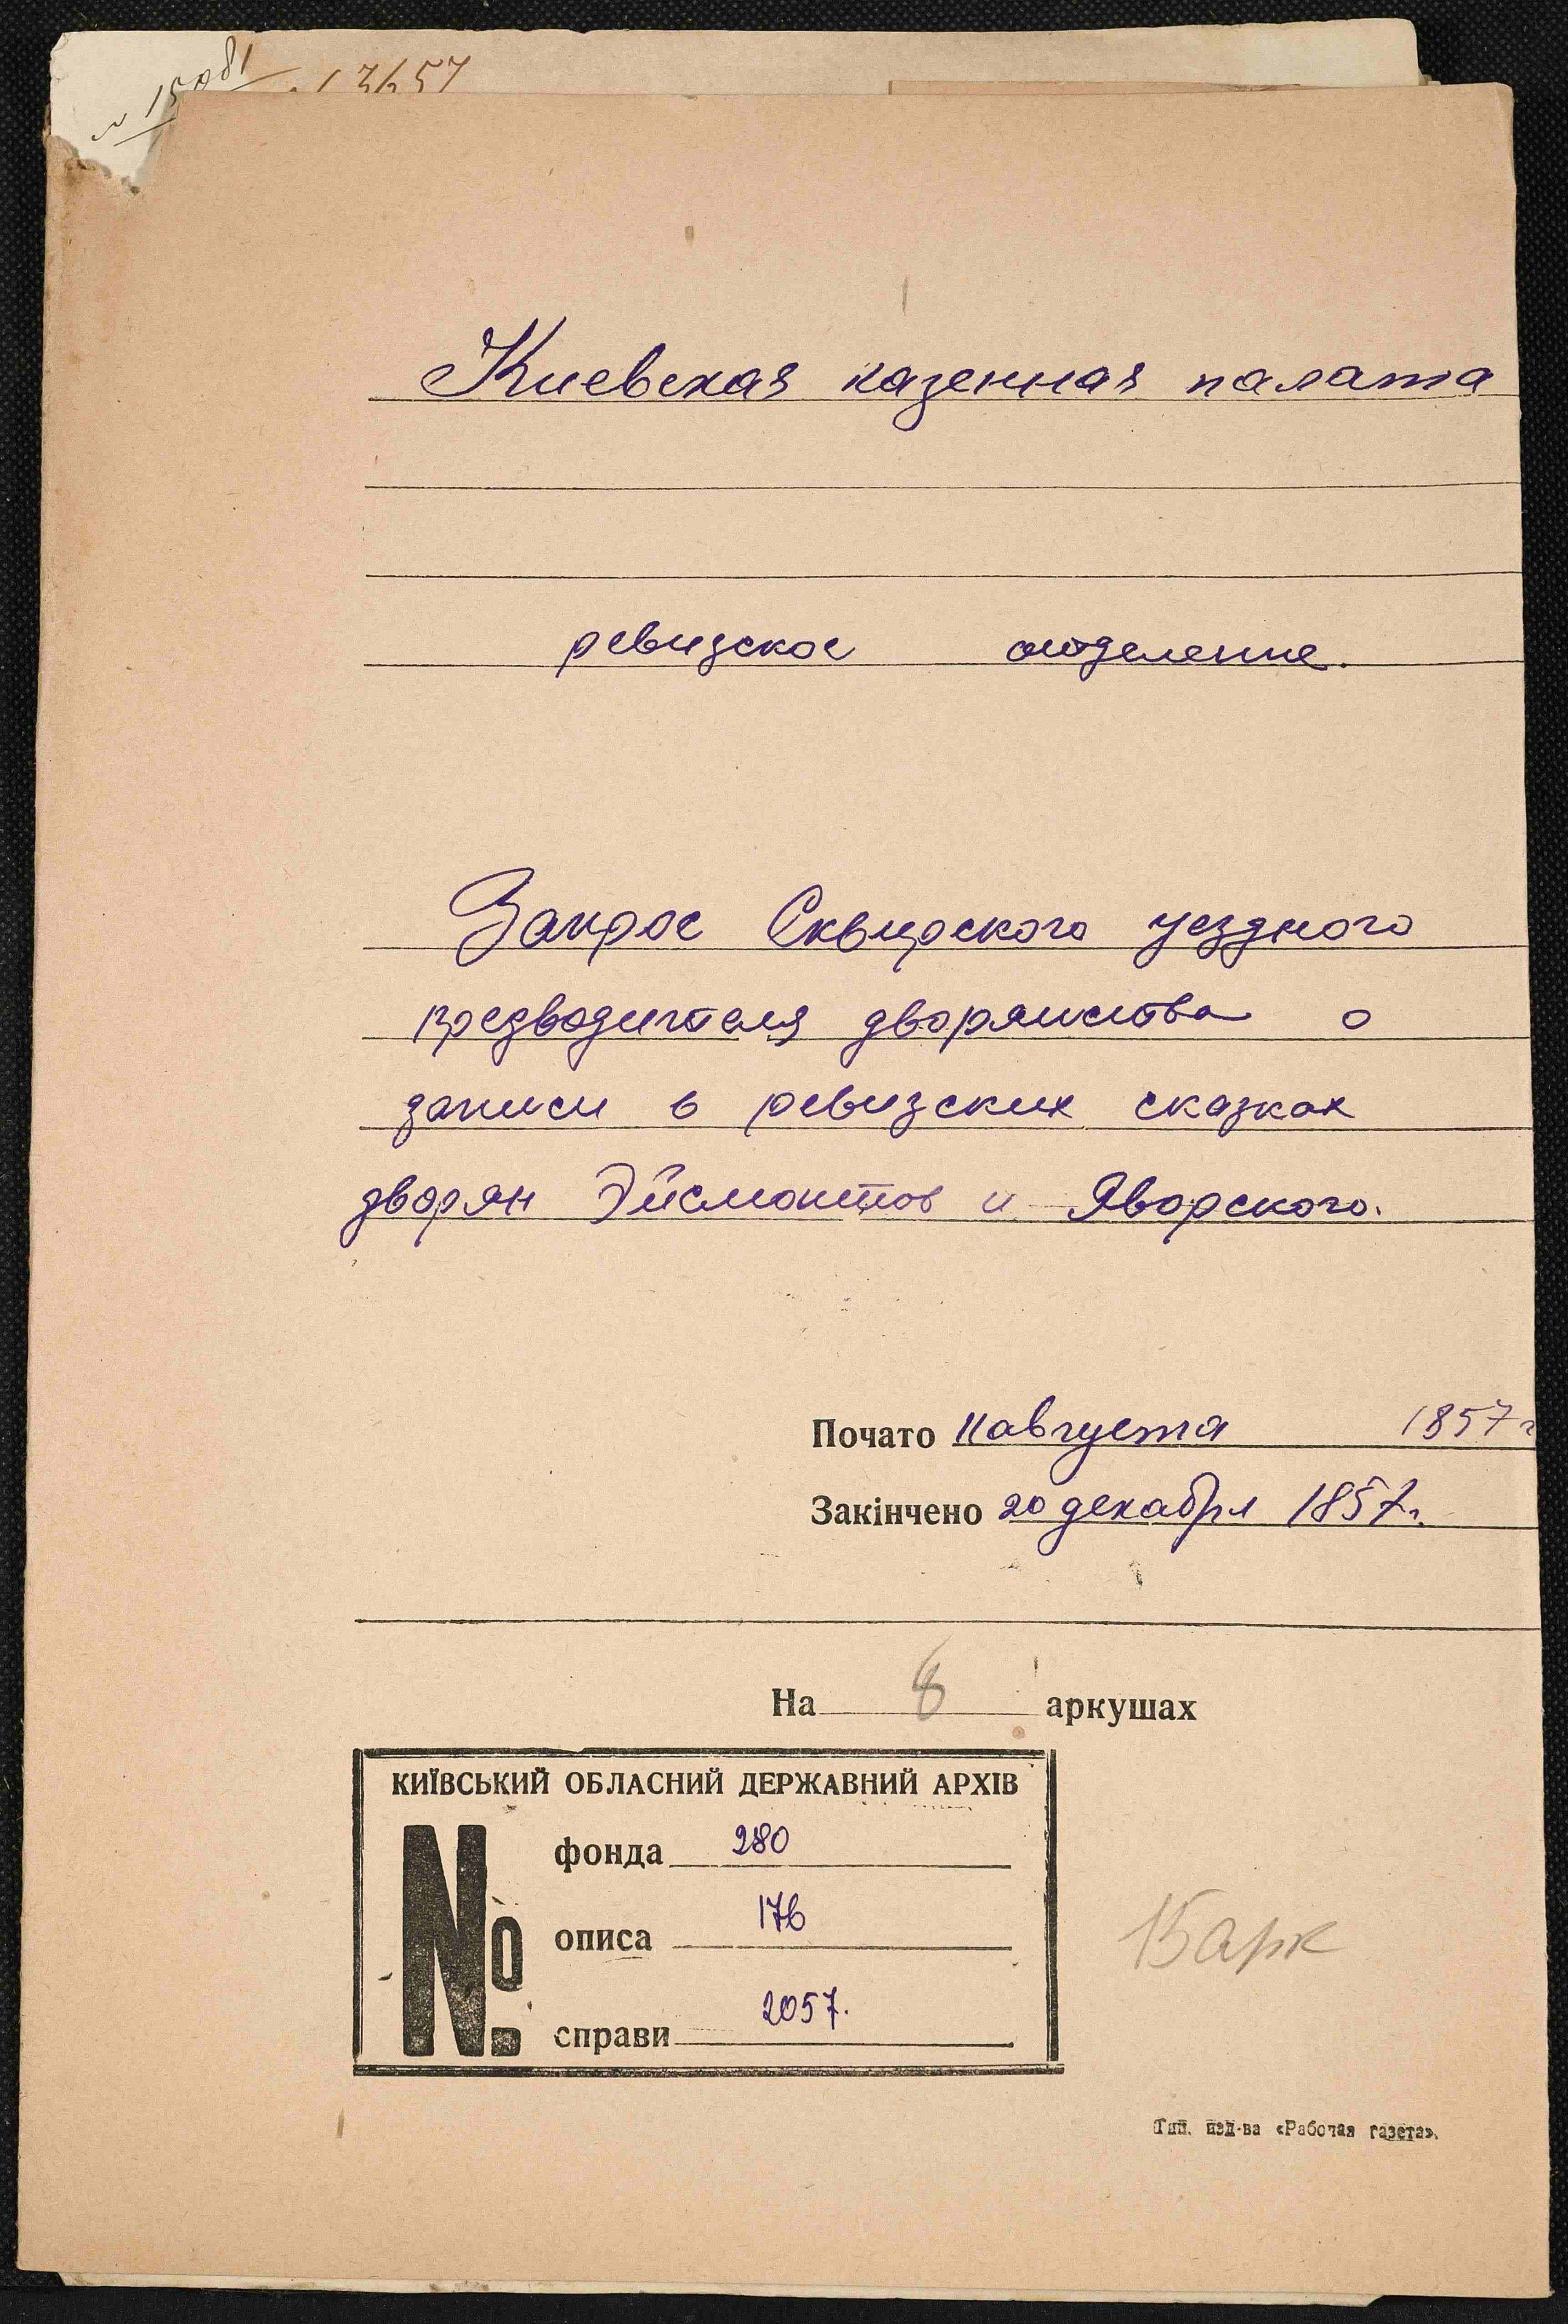 № 15081
13657
Киевская казенная палата
ревизское отделение.
Запрос Сквирского уездного
предводителя дворянства о
записи в ревизских сказках
дворян Эйсмонтов и Яворского.
Почато 11 августа 1857 г
Закінчено 20 декабря 1857 г.
На 8 аркушах
КИЇВСЬКИЙ ОБЛАСНИЙ ДЕРЖАВНИЙ АРХІВ
№
фонда 280
описа 176
справи 2057.
Тип. изд-ва «Рабочая газета».